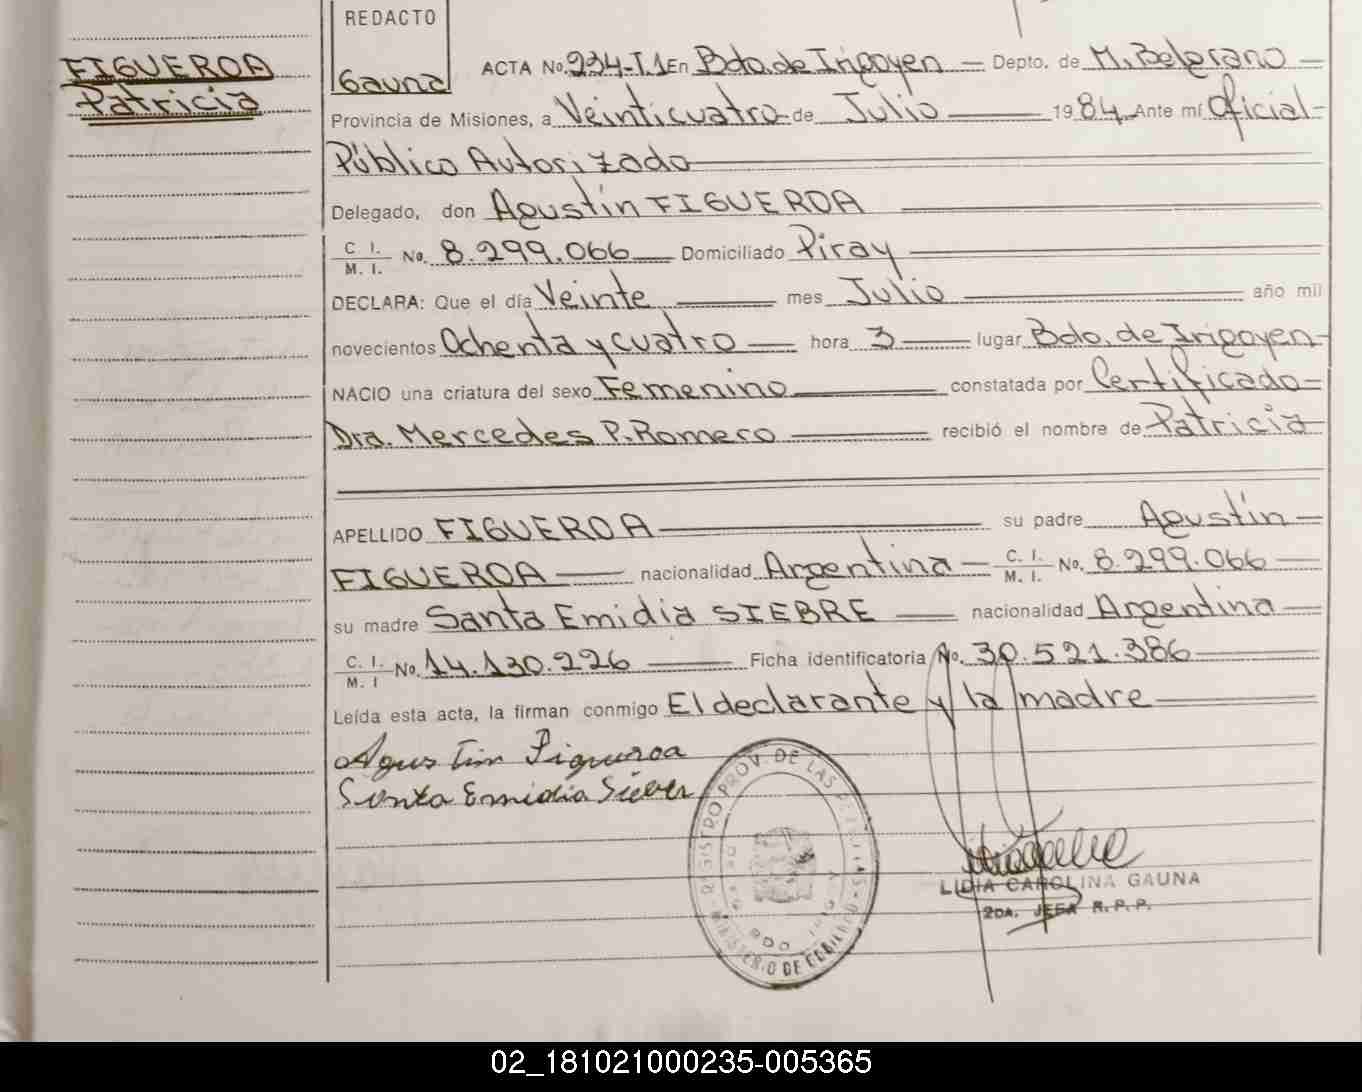 FIGUEROA
Patricia
REDACTO
Gauna
ACTA No. 234-T.1 En Bdo. de Irigoyen — Depto. de M. Belgrano —
Provincia de Misiones, a Veinticuatro de Julio — 1984 Ante mí Oficial-
Público Autorizado
Delegado, don Agustín FIGUEROA
C. I.
M. I. No. 8.299.066 Domiciliado Piray
DECLARA: Que el día Veinte — mes Julio — año mil
novecientos Ochenta y cuatro — hora 3 — lugar Bdo. de Irigoyen-
NACIO una criatura del sexo Femenino — constatada por Certificado-
Dra. Mercedes P. Romero — recibió el nombre de Patricia
APELLIDO FIGUEROA — su padre Agustín —
FIGUEROA — nacionalidad Argentina — C. I. M. I. No. 8.299.066
su madre Santa Emidia SIEBRE — nacionalidad Argentina —
C. I.
M. I No. 14.130.226 — Ficha identificatoria No. 30.521.386
Leída esta acta, la firman conmigo El declarante y la madre
Agustin Figueroa
Santa Emidia
REGISTRO PROV. DE LAS PERSONAS
MINISTERIO DE GOBIERNO
BDO
LIDIA CAROLINA GAUNA
2DA. JEFA R. P. P.
02_181021000235-005365